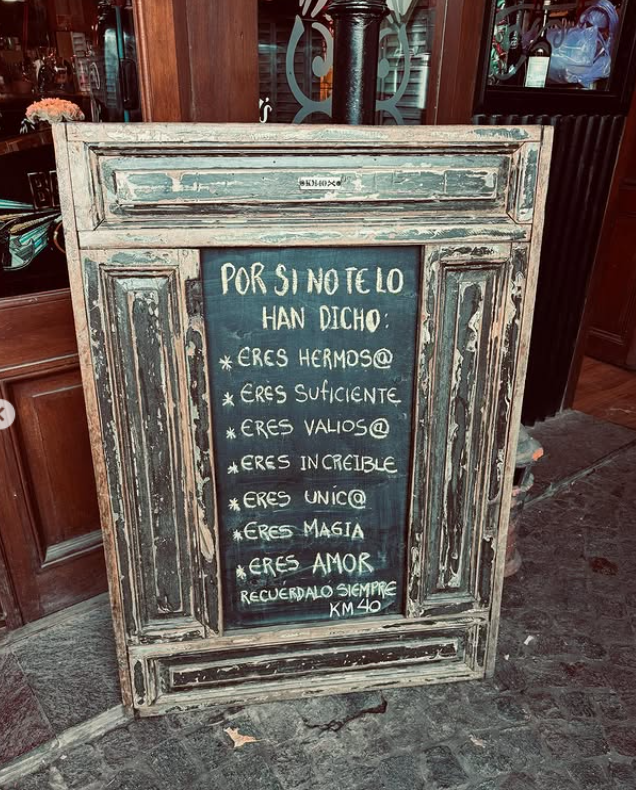 POR SI NO TE LO
HAN DICHO:
* ERES HERMOS@
* ERES SUFICIENTE
* ERES VALIOS@
* ERES INCREIBLE
* ERES UNIC@
* ERES MAGIA
* ERES AMOR
RECUÉRDALO SIEMPRE
KM 40